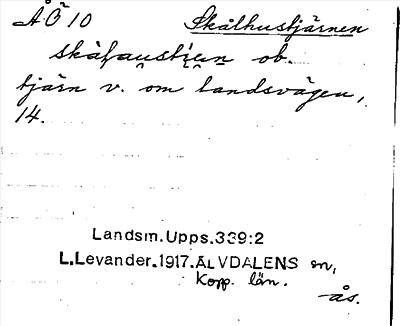 ÅÖ 10 Skålhustjärnen
skåfaustjęņn ob.
tjärn v. om landsvägen,
14.
Landsm.Upps.339:2
L.Levander.1917.ÄLVDALENS sn,
Kopp. län.
ås.